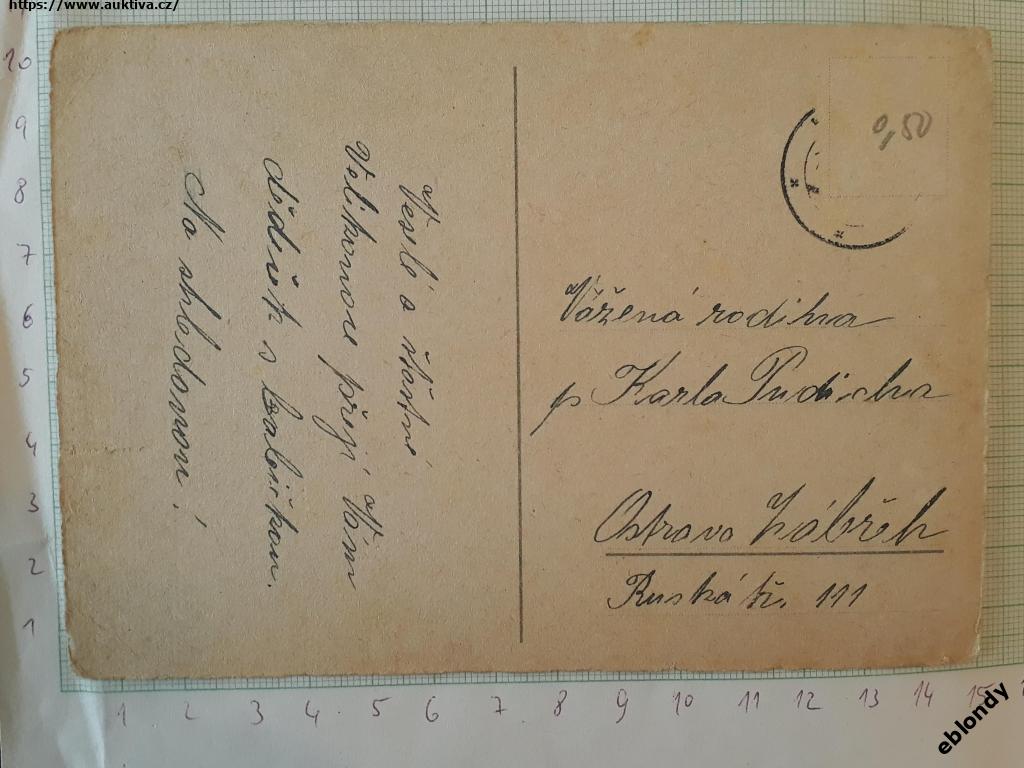 https://www.auktiva.cz/
Veselé a šťastné
Velikonoce přejí Vám
dědiček s babičkou.
Na shledanou!
0,50
Vážená rodina
p Karla
Ostrava Zábřeh
Ruská tř. 111
10
9
8
7
6
5
4
3
2
1
1 2 3 4 5 6 7 8 9 10 11 12 13 14 15
eblondy